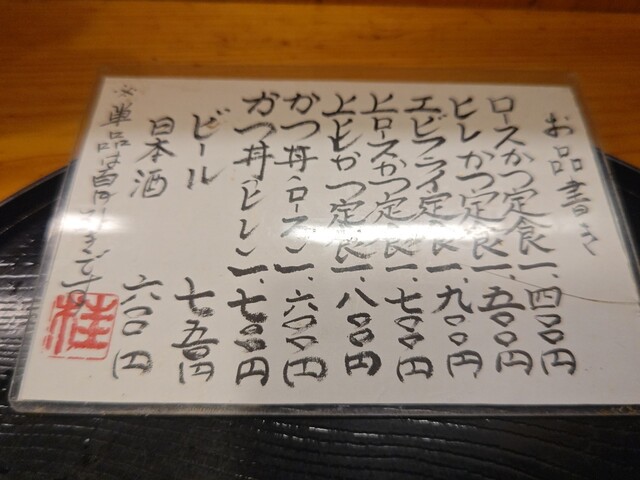 お品書き
ロースかつ定食 一、四〇〇円
ヒレかつ定食 一、五〇〇円
エビフライ定食 一、九〇〇円
上ロースかつ定食 一、七〇〇円
上ヒレかつ定食 一、八〇〇円
かつ丼(ロース) 一、六〇〇円
かつ丼(ヒレ) 一、七〇〇円
ビール 七五〇円
日本酒 六〇〇円
※単品は百円引きです。
桂